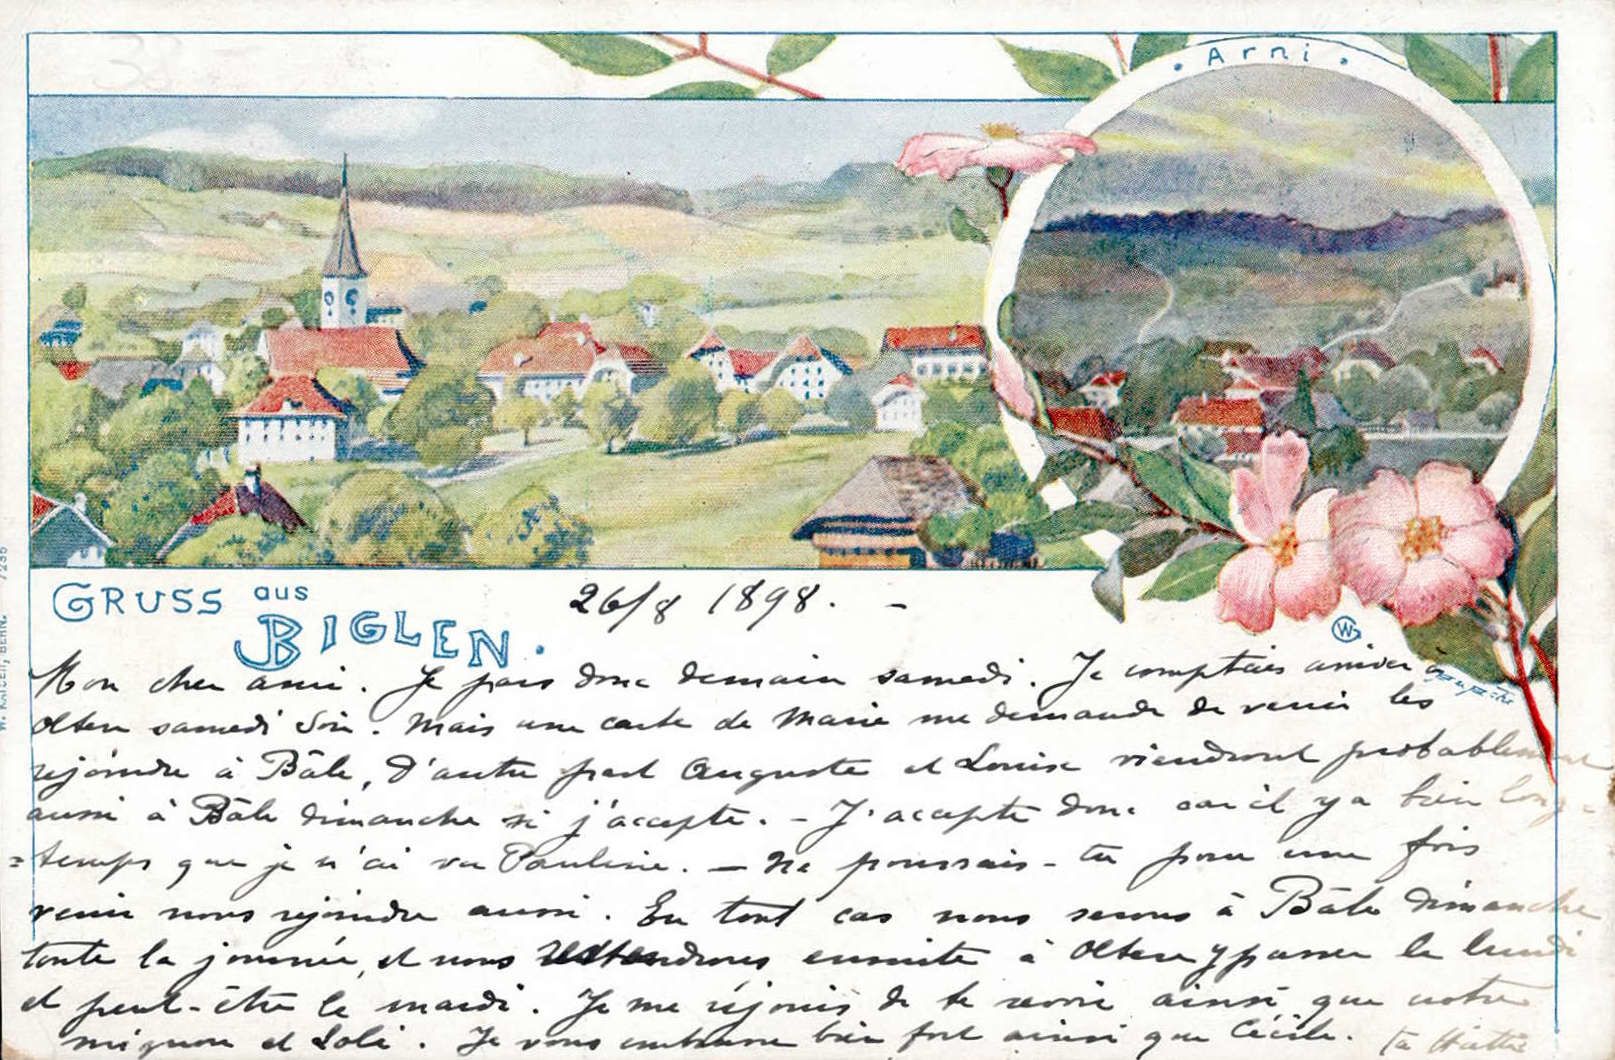 Arni
GRUSS aus
BIGLEN.
26/8 1898. –
W. KAISER, BERN. 7235
Mon cher ami. Je pars donc demain samedi. Je comptais arriver à
Olten samedi soir. Mais une carte de Marie me demande de venir les
rejoindre à Bâle, d'autre part Auguste et Louise viendront probablement
aussi à Bâle dimanche si j'accepte. – J'accepte donc car il y a bien long-
=temps que je n'ai vu Pauline. – Ne pourrais-tu pour une fois
venir nous rejoindre aussi. En tout cas nous serons à Bâle dimanche
toute la journée, et nous ensuite à Olten y passer le lundi
et peut-être le mardi. Je me réjouis de te revoir ainsi que notre
mignon et Loli. Je vous embrasse bien fort ainsi que Cécile. ta